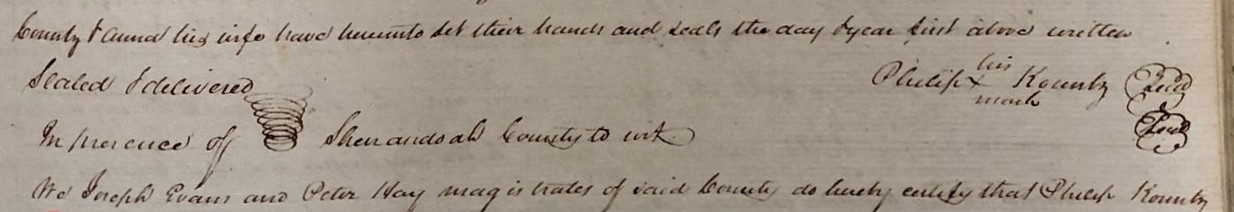 County & Anna his wife have hereunto set their hands and seals the day & year first above written
Sealed & delivered
his
Philip X Kountz Seal
mark
Seal
In presence off Shenandoah County to wit
We Joseph Evans and Peter Hay magistrates of said County do hereby certify that Philip Kountz